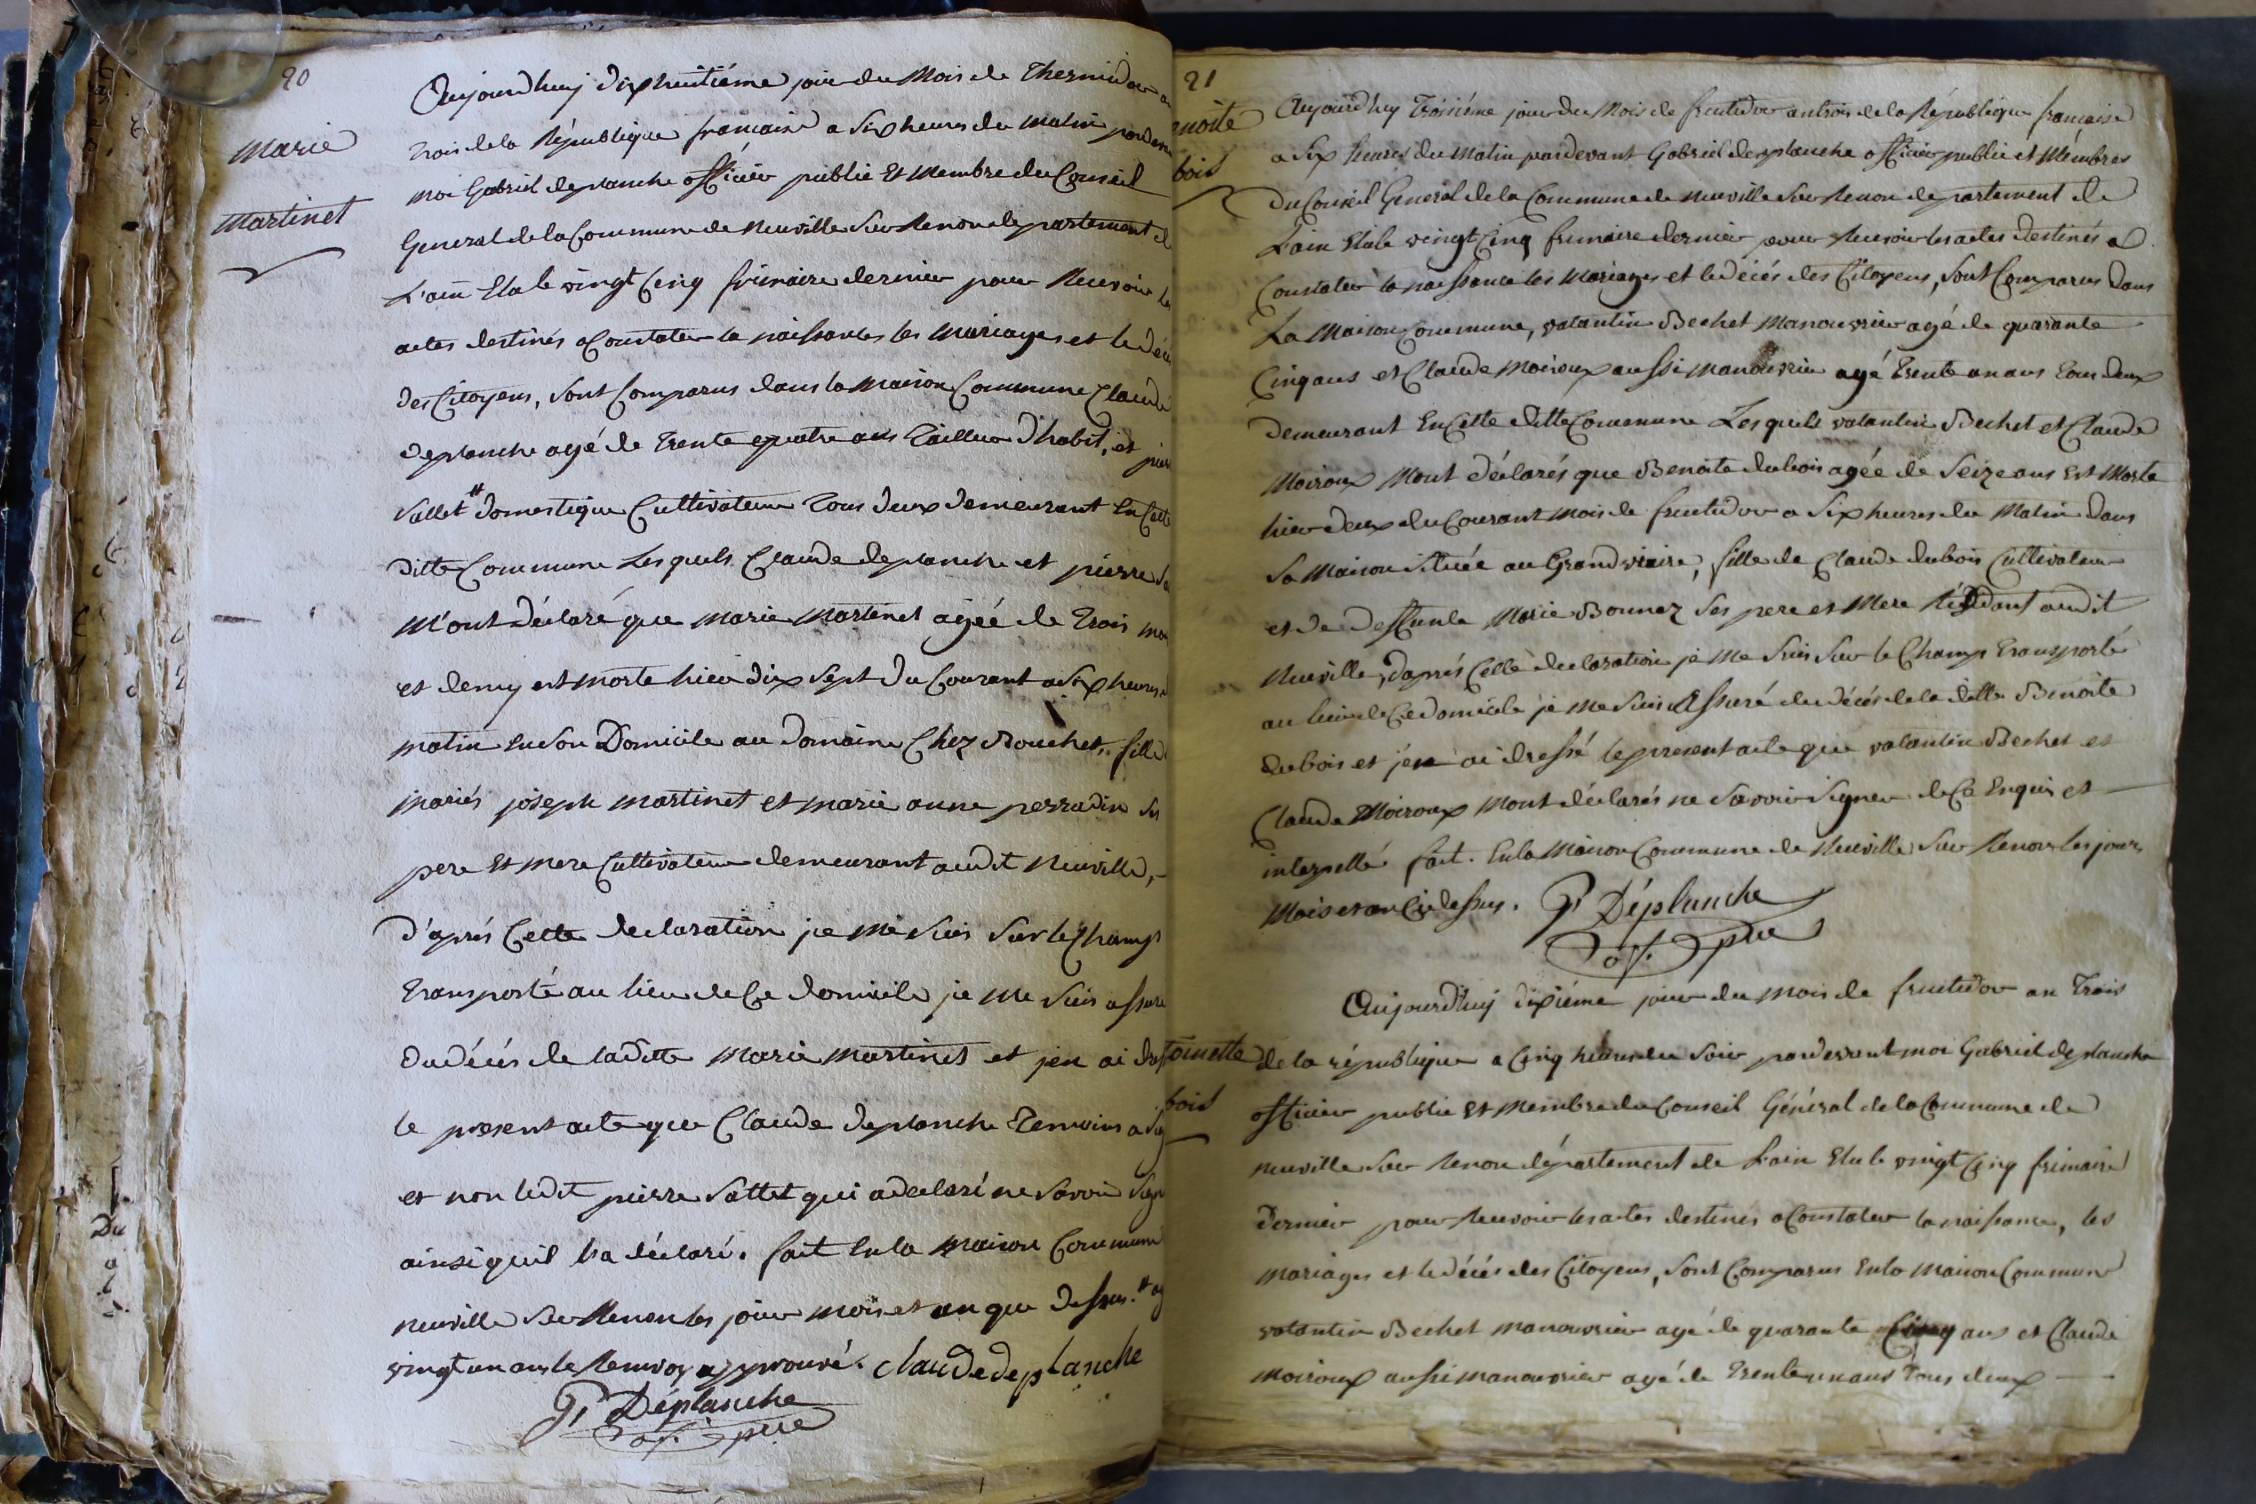 20
Marie
Martinet
Aujourdhuy dixhuitiéme jour du Mois de Thermidor an
trois de la République francaise a Six heures du Matin pardevan
moi Gabriel deplanche officier public Et Membre du Conseil
General de la Commune de Neuville Sur Renon departement de
L'ain Elu le vingt Cinq frimaire dernier pour Recevoir les
actes destinés a Constater la naissances les Mariages et le décé
des Citoyens, Sont Comparus dans la Maison Commune Claude
deplanche agé de trente quatre ans tailleur D'habit, et pier
Sallet # domestique Cultivateur tous deux demeurant En Cette
ditte Commune Lesquels Claude deplanche et pierre Sa
M'ont déclaré que Marie Martinet agée de trois moi
et demy est morte hier dix Sept du Courant a Six heures d
matin en Son Domicile au domaine Chez Bouchet, fille d
mariés joseph martinet et marie anne perradin Ses
pere Et Mere Cultivateur demeurant audit Neuville, -
d'aprés Cette declaration je me Suis Sur le Champ
transporté au lieu de Ce domicile je Me Suis assuré
du décés de laditte Marie Martinet et jen ai dres
le present acte que Claude deplanche temoins a Sig
et non ledit pierre Sallet qui a déclaré ne Savoir Sign
ainsi quil la déclaré. fait En la Maison Commune
neuville Sur Renon les jour mois et an que dessus. # ag
vingt un ans le Renvoy approuvé. Claude deplanche
G. Déplanche
of. pue
21
noite
bois
Aujourdhuy Troisiéme jour du Mois de fructidor an trois de la République francaise
a Six heures du Matin pardevant Gabriel deplanche officier public et Membres
Du Conseil General de la Commune de Neuville Sur Renon departement de
L'ain Elu le vingt Cinq frimaire dernier pour Recevoir les actes destinés a
Constater la naissance les Mariages et le décés des Citoyens, Sont Comparus dans
La Maison Commune, valantin Bechet Manouvrier agé de quarante
Cinq ans et Claude Moiroux aussi Manouvrier agé trente un ans tous deux
demeurant En Cette ditte Commune Lesquels valantin Bechet et Claude
Moiroux Mont déclarés que Benoite dubois agée de Seize ans Est Morte
hier deux du Courant Mois de fructidor a Six heures du Matin dans
Sa Maison Située au Grand , fille de Claude dubois Cultivateur
et de deffunte Marie Bonnez Ses pere et Mere Résidant audit
Neuville, d'aprés Cette declaration je Me Suis Sur le Champ transporté
au lieu de Ce domicile je Me Suis Assuré du décés de la ditte Benoite
dubois et jen ai dressé le present acte que valantin Bechet et
Claude Moiroux Mont déclarés ne Savoir Signer de Ce Enquis et
interpellé fait. En la Maison Commune de Neuville Sur Renon les jours
Mois et an Cy dessus. G. Déplanche
of. pue
Aujourd'huy dixiéme jour du Mois de fructidor an Trois
toinette
bois
de la république a Cinq heures du Soir pardevant moi Gabriel deplanche
officier public Et Membre du Conseil Général de la Commune de
Neuville Sur Renon département de L'ain Elu le vingt Cinq frimaire
dernier pour Recevoir les actes destinés a Constater la naissance, les
Mariages et le décés des Citoyens, Sont Comparus En la Maison Commune
valantin Bechet manouvrier agé de quarante Cinq ans et Claude
Moiroux aussi manouvrier agé de trente un ans tous deux